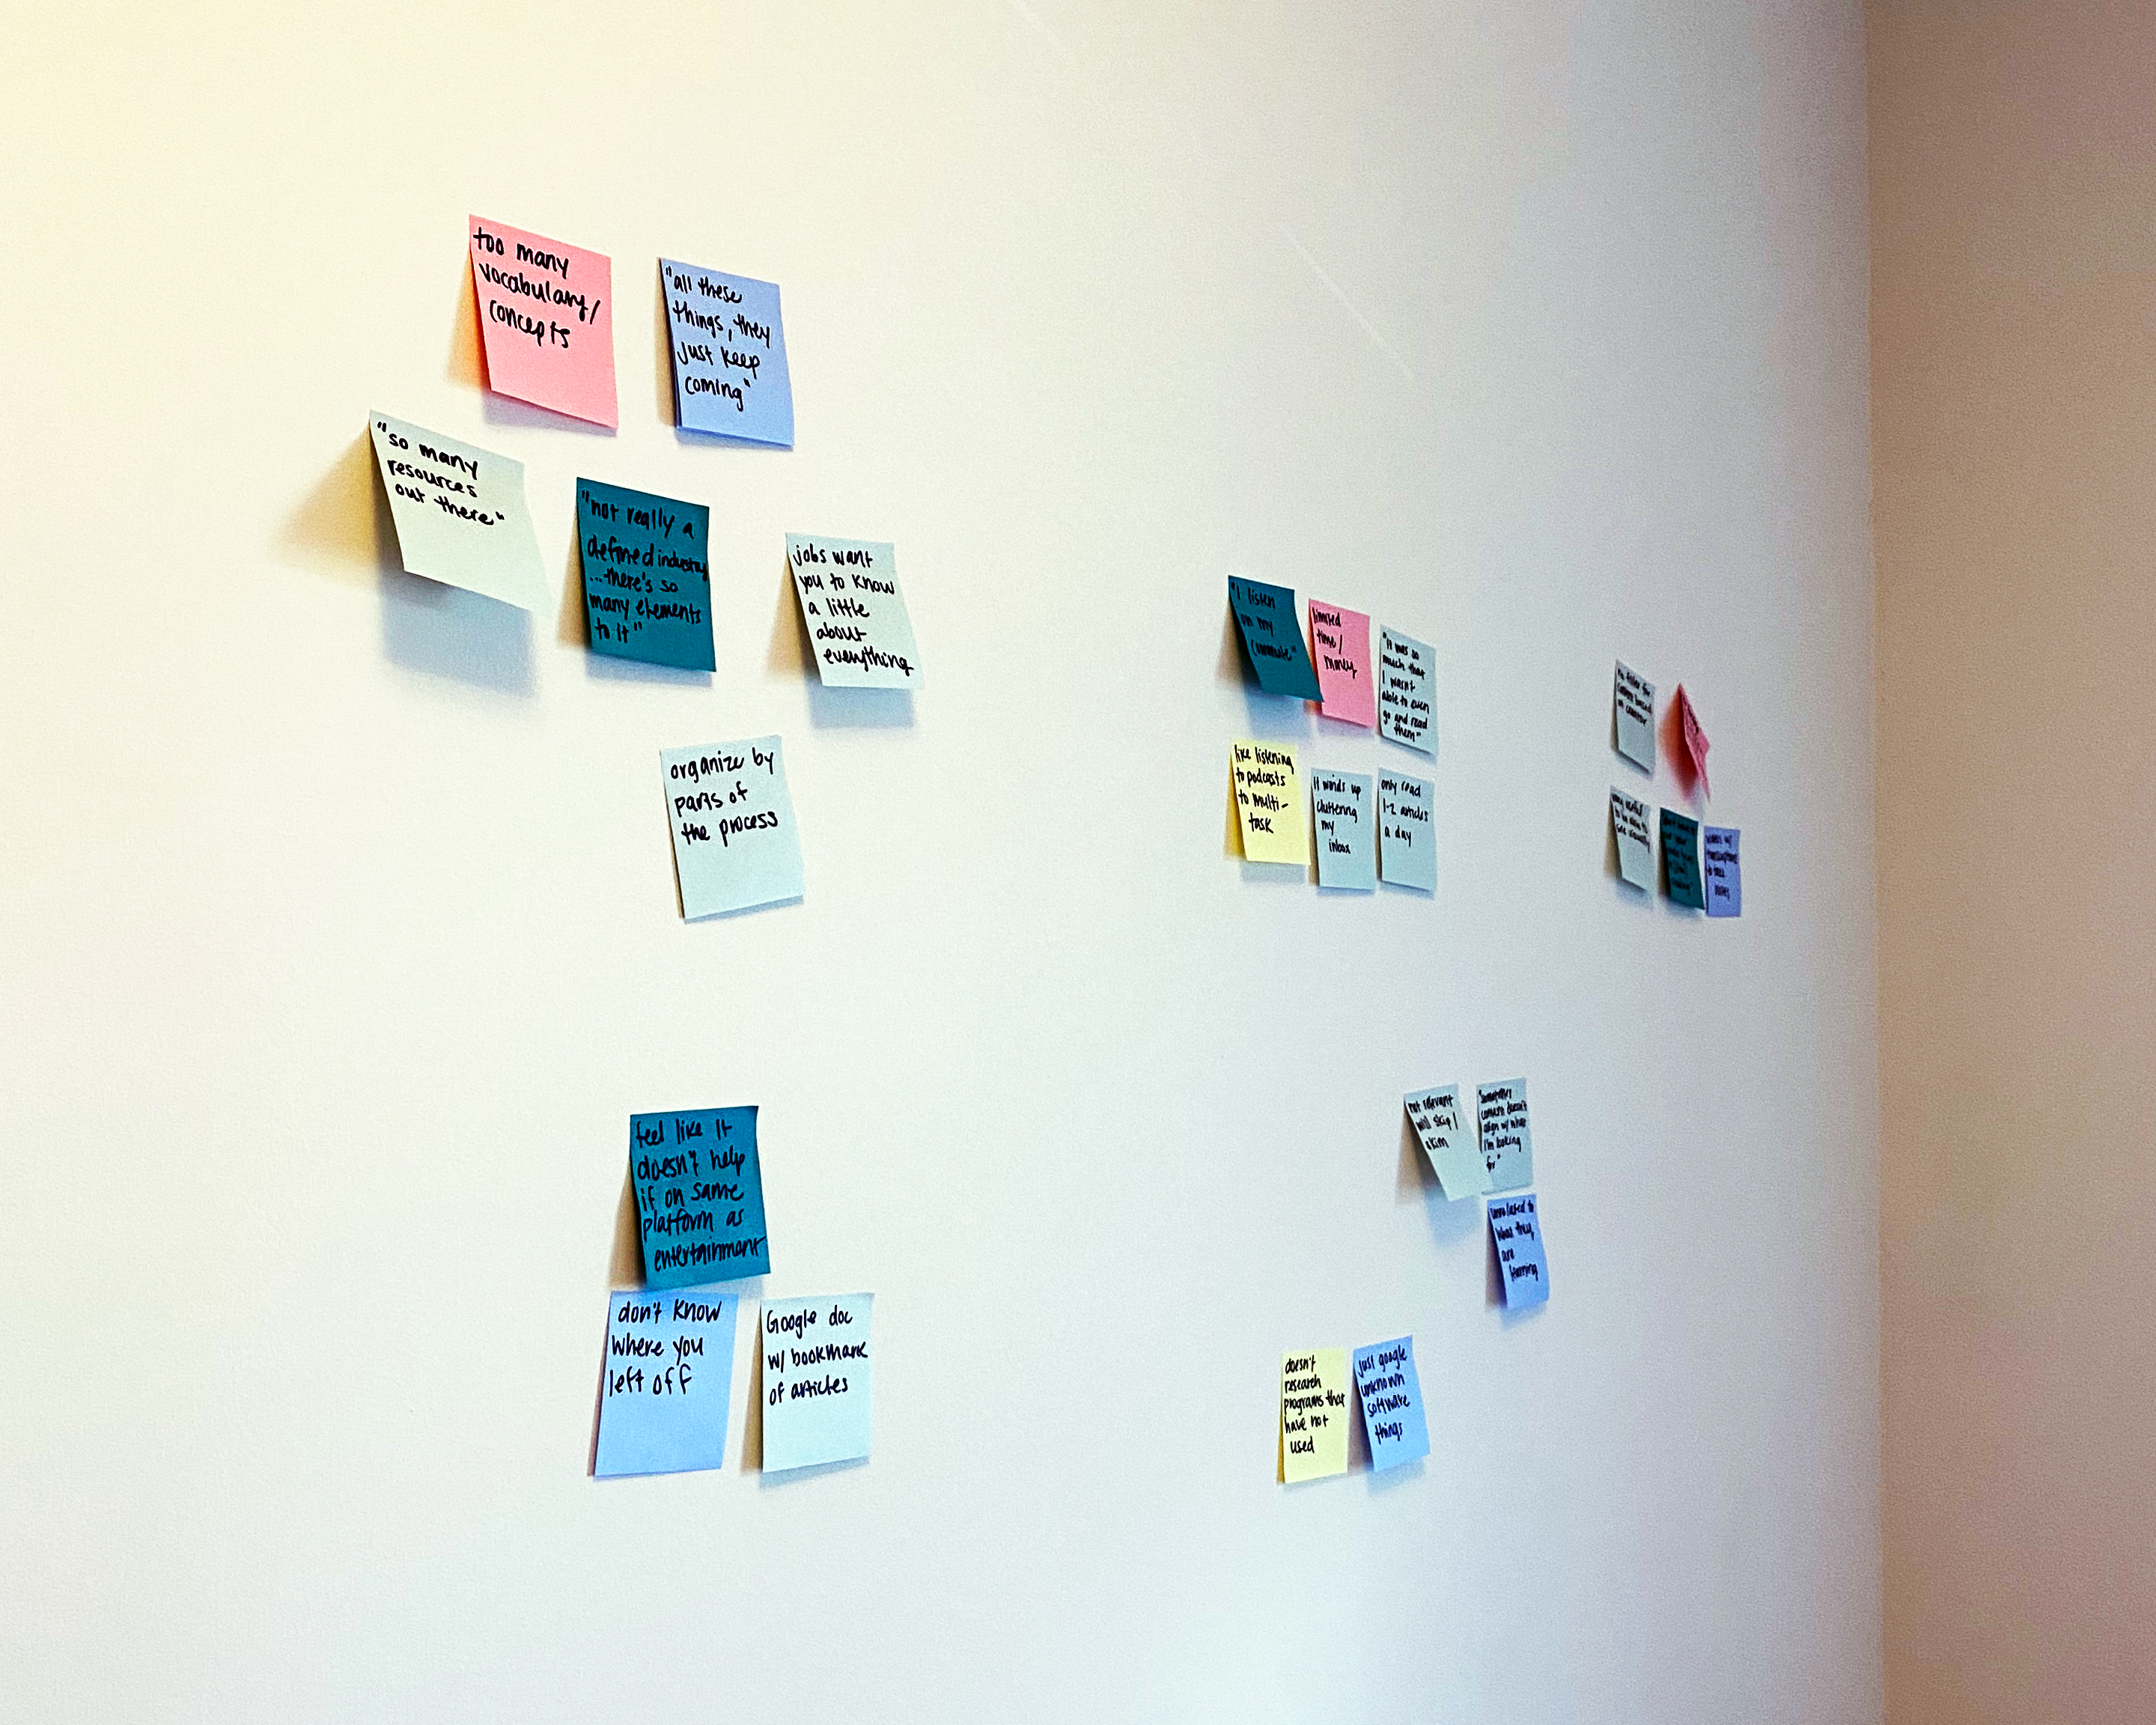 too many
vocabulary/
concepts
"all these
things, they
just keep
coming"
"so many
resources
out there"
"not really a
defined industry
...there's so
many elements
to it"
jobs want
you to know
a little
about
everything
organize by
parts of
the process
"I listen
on my
commute"
limited
time/
money
"It was so
much that
I wasn't
able to even
go and read
them"
like listening
to podcasts
to multi-
task
It winds up
cluttering
my
inbox
only read
1-2 articles
a day
feel like it
doesn't help
if on same
platform as
entertainment
don't know
where you
left off
Google doc
w/ bookmark
of articles
not relevant
will skip/
skim
"Sometimes
content doesn't
align w/ what
I'm looking
for"
unrelated to
what they
are
learning
doesn't
research
programs that
have not
used
just google
unknown
software
things